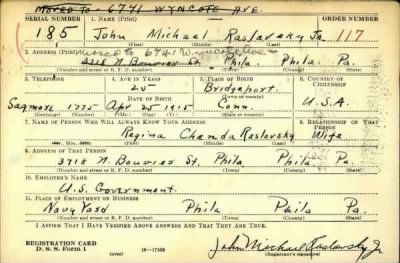 MOVED TO - 6741 WYNCOTE AVE.
SERIAL NUMBER 1. NAME (Print) ORDER NUMBER
185 John Michael Raslavsky Jr. 117
(First) (Middle) (Last)
2. ADDRESS (Print) moved to 6741 Wyncote Ave
3718 N. Bouvier St. Phila. Phila. Pa.
(Number and street or R. F. D. number) (Town) (County) (State)
3. TELEPHONE 4. AGE IN YEARS 5. PLACE OF BIRTH 6. COUNTRY OF CITIZENSHIP
25 Bridgeport
DATE OF BIRTH (Town or county)
Sagmore 1775 Apr 25 1915 Conn. U.S.A.
(Exchange) (Number) (Mo.) (Day) (Yr.) (State or country)
7. NAME OF PERSON WHO WILL ALWAYS KNOW YOUR ADDRESS 8. RELATIONSHIP OF THAT PERSON
Regina Chanda Raslavsky Wife
(Mr., Mrs., Miss) (First) (Middle) (Last)
9. ADDRESS OF THAT PERSON
3718 N. Bouvier St. Phila Phila Pa.
(Number and street or R. F. D. number) (Town) (County) (State)
10. EMPLOYER'S NAME
U.S. Government
11. PLACE OF EMPLOYMENT OR BUSINESS
Navy Yard Phila Phila Pa.
(Number and street or R. F. D. number) (Town) (County) (State)
I AFFIRM THAT I HAVE VERIFIED ABOVE ANSWERS AND THAT THEY ARE TRUE.
REGISTRATION CARD
D. S. S. Form 1 (over) 16-17105 John Michael Raslavsky Jr
(Registrant's signature)